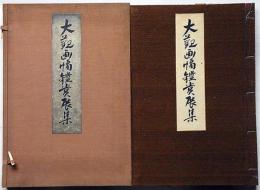 大観画幅鑑賞聚集
大観画幅鑑賞聚集